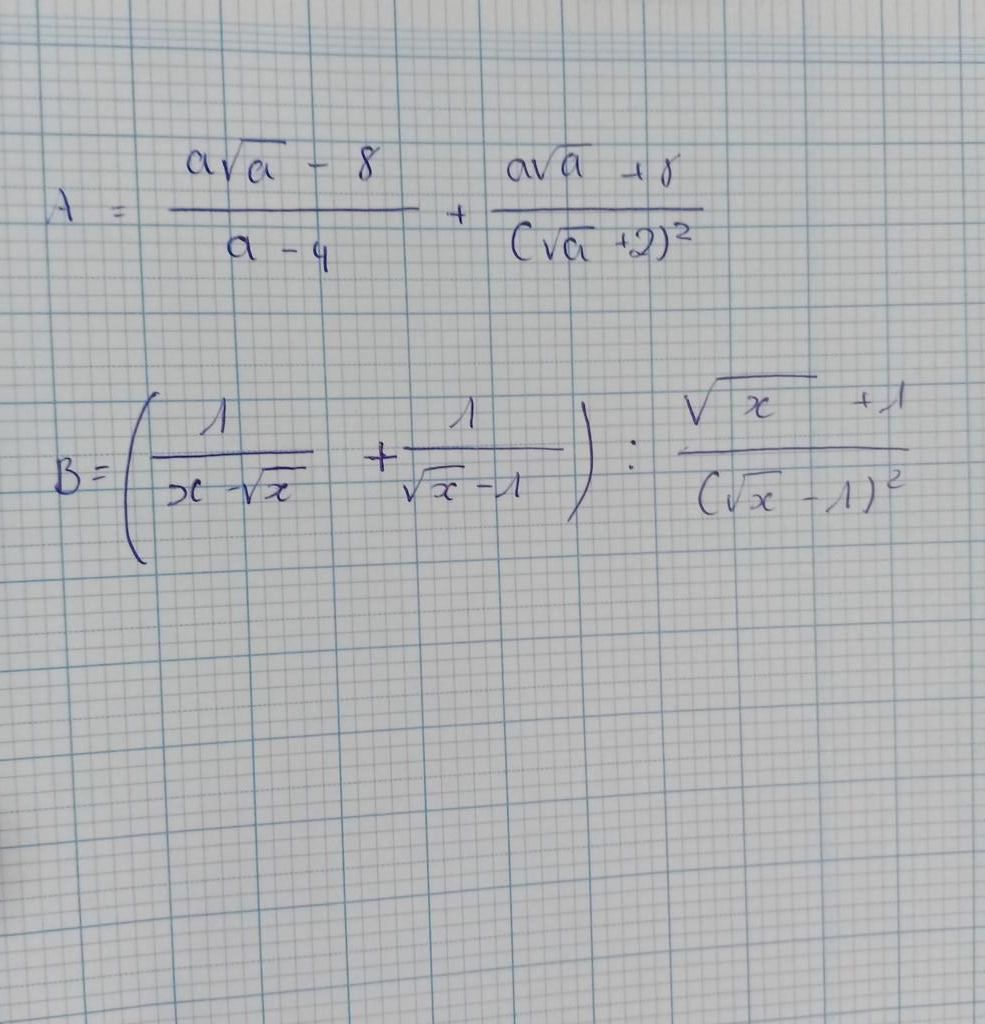 A = \frac{a\sqrt{a} - 8}{a - 4} + \frac{a\sqrt{a} + 8}{(\sqrt{a} + 2)^2}
B = \left( \frac{1}{x - \sqrt{x}} + \frac{1}{\sqrt{x} - 1} \right) : \frac{\sqrt{x} + 1}{(\sqrt{x} - 1)^2}